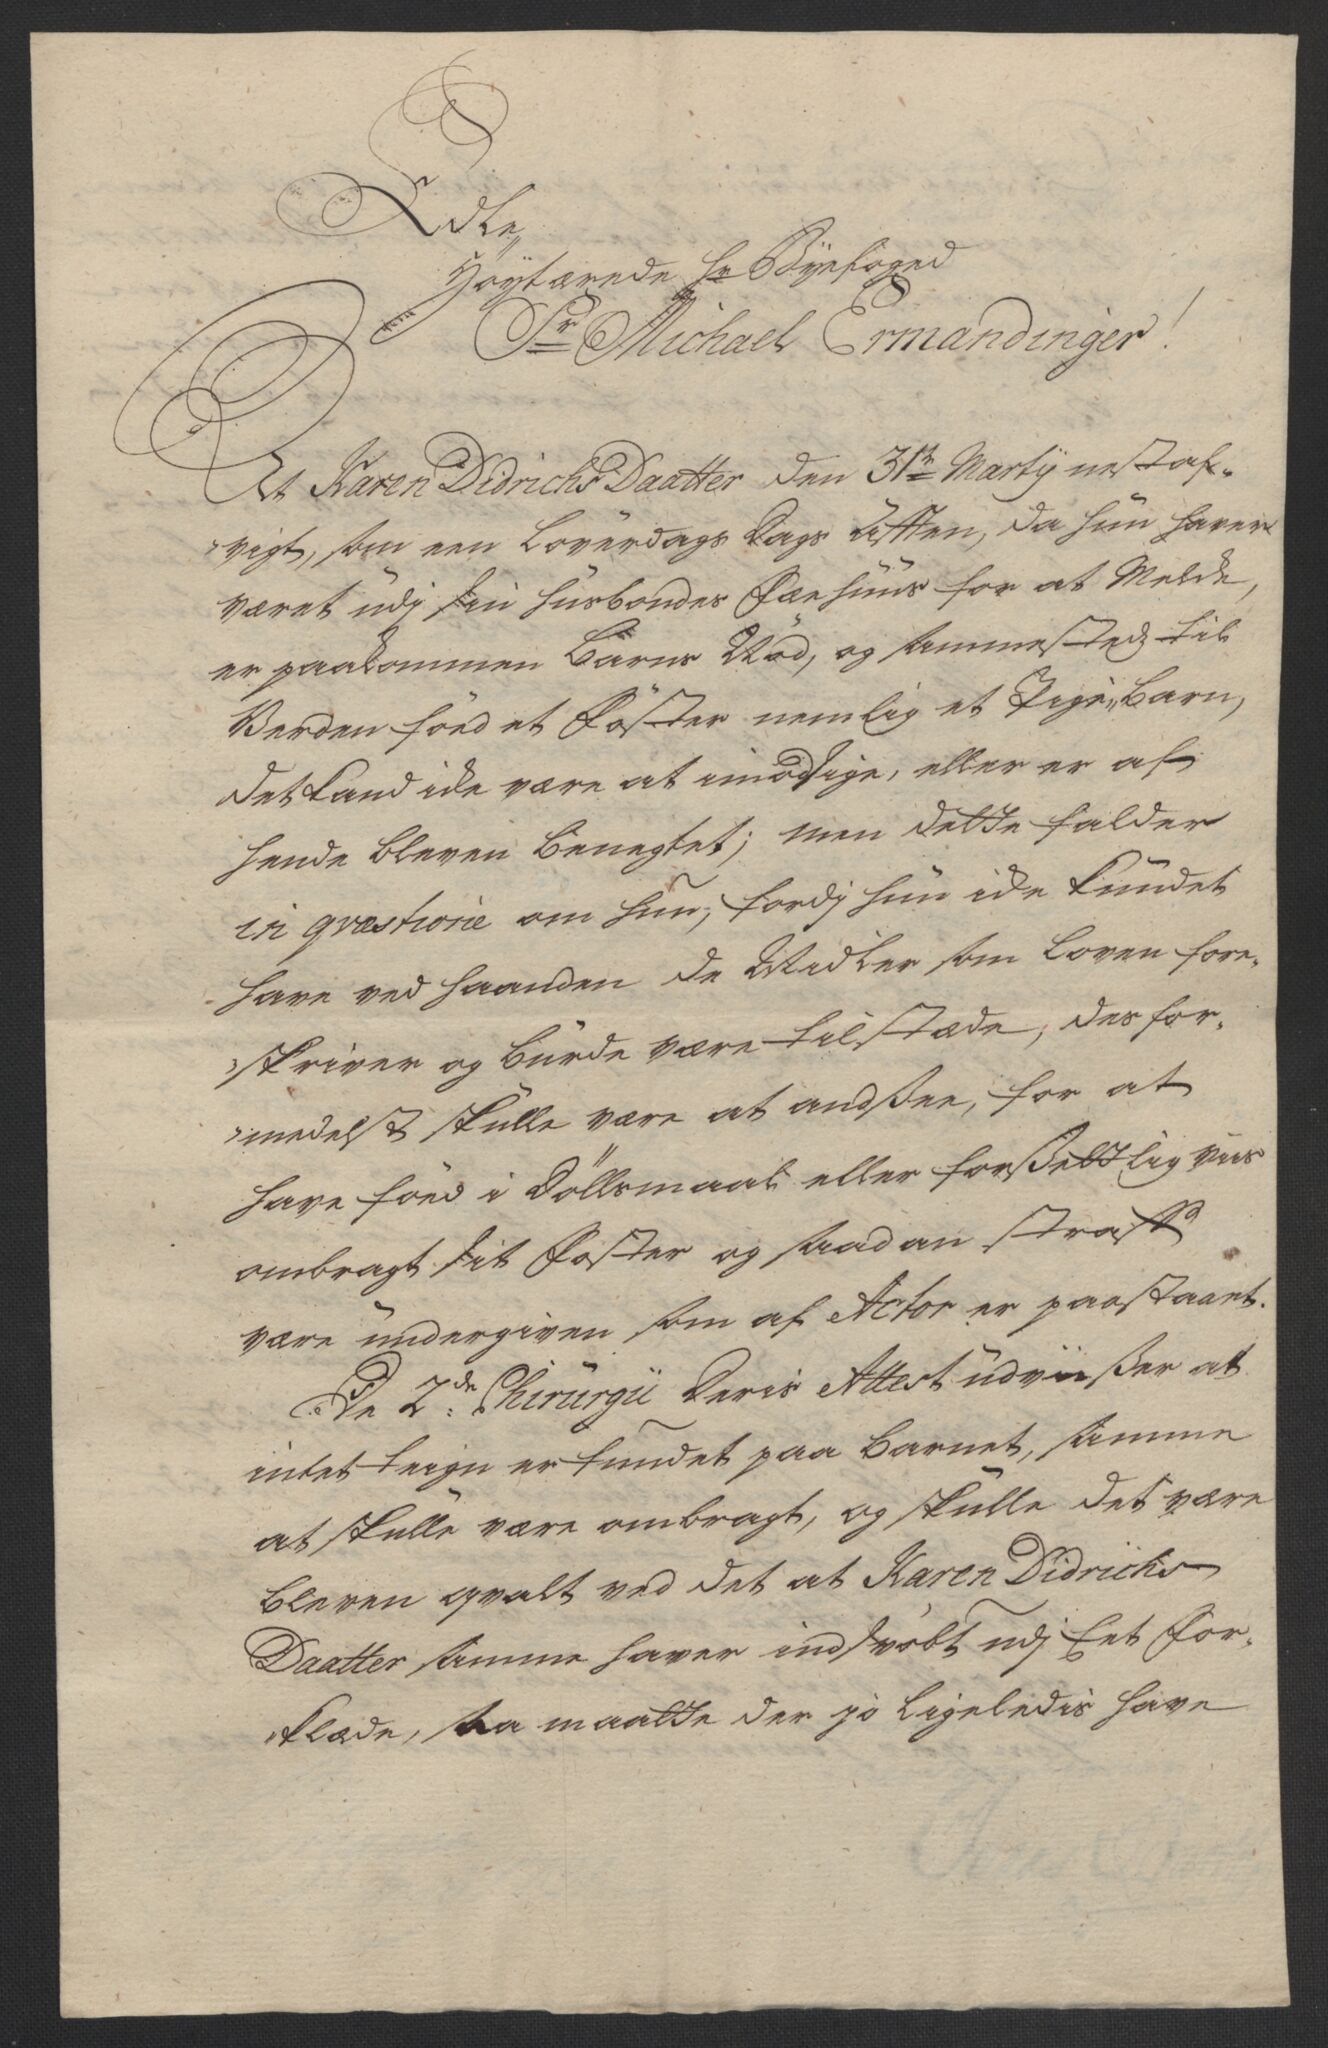 Ædle
Höytærede Hr Byefoged
Sr Michael Ermandinger!
At Karen Didrichs Daatter den 31te Martÿ nestaf-
vigt, som een Löverdags Dags Afften, da hun haver
været udj sin Huusbondes Fæehuus for at Melcke,
er paakommen Barns Nöd, og sammested til
Verden föed et Föster nemlig et Pige Barn,
det kand icke være at imodsige, eller er af
hende bleven benegtet; men dette falder
in qvæstione om hun, fordj hun icke kundet
have ved haanden de Midler som Loven fore-
skriver og burde være tilstæde, des for-
medelst skulle være at andsee, for at
have föed i Döllsmaal eller forsetlig viis
ombragt sit Foster og saadan straff
være undergiven som af Actor er paastaaet.
De 2de Chirurgii Deris Attest udviiser at
intet teign er fundet paa Barnet, samme
at skulle være ombragt, og skulle det være
bleven qvalt ved det at Karen Didrichs
Daatter samme haver indsvöbt udj Eet For-
klæde, saa maatte der jo ligeledis have